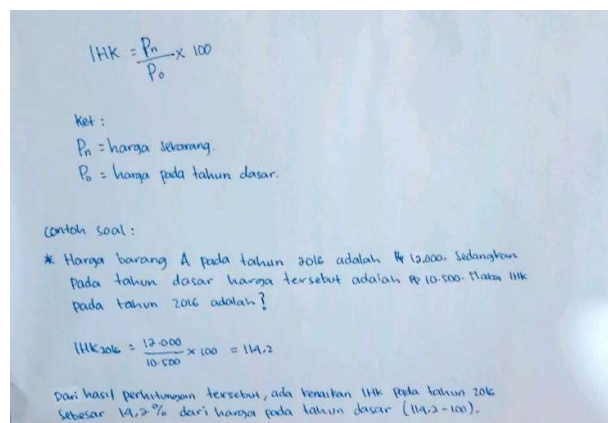 IHK = Pn/Po x 100
Ket :
Pn = harga sekarang.
Po = harga pada tahun dasar.
Contoh soal :
* Harga barang A pada tahun 2016 adalah Rp 12.000. Sedangkan
pada tahun dasar harga tersebut adalah Rp 10.500. Maka IHK
pada tahun 2016 adalah?
IHK2016 = 12.000/10.500 x 100 = 114,2
Dari hasil perhitungan tersebut, ada kenaikan IHK pada tahun 2016
sebesar 14,2% dari harga pada tahun dasar (114,2-100).